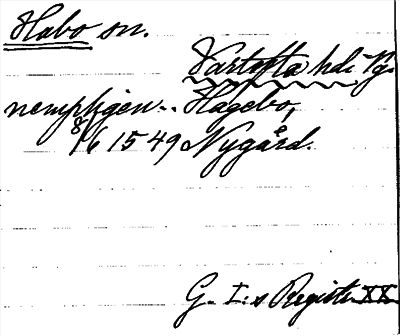 Habo sn.
Vartofta hd. Vg.
nempligen.. Hagebo,
8/6 1549 Nygård.
G. I:s Registr. XX